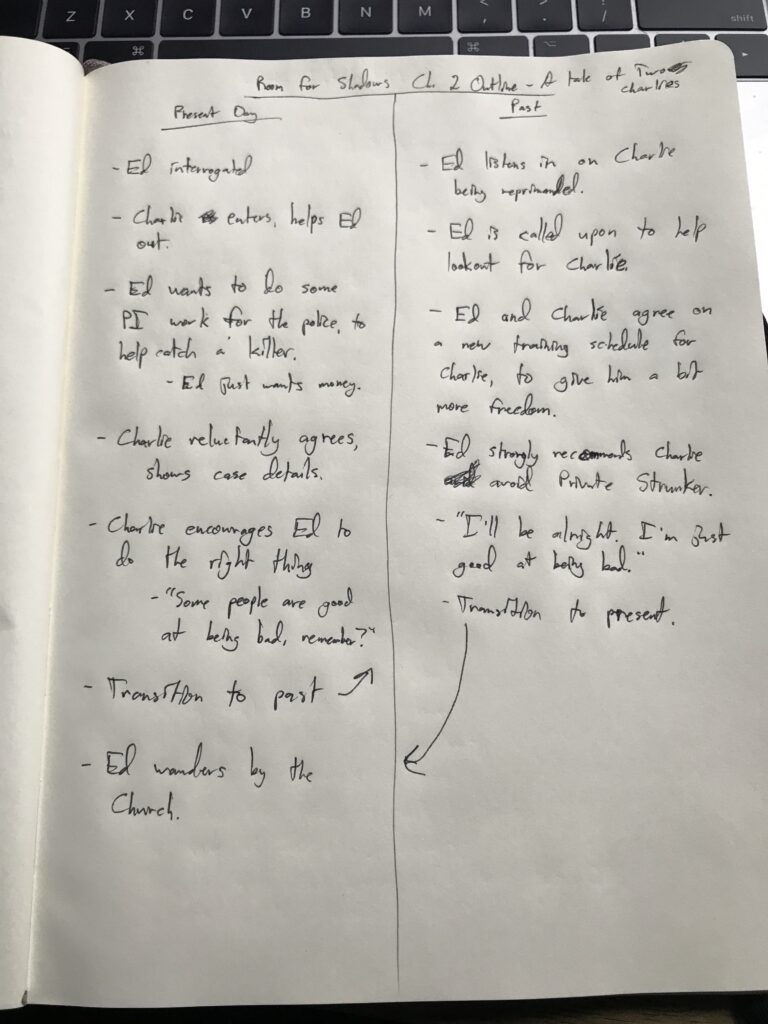 Z X C V B N M < , > . ? /
shift
⌘ ⌘
Room for Shadows Ch. 2 Outline - A tale of Two
charlies
Present Day
- Ed interrogated
- Charlie enters, helps Ed
out.
- Ed wants to do some
PI work for the police, to
help catch a killer.
- Ed just wants money.
- Charlie reluctantly agrees,
shows case details.
- Charlie encourages Ed to
do the right thing
- "Some people are good
at being bad, remember?"
- Transition to past
- Ed wanders by the
Church.
Past
- Ed listens in on Charlie
being reprimanded.
- Ed is called upon to help
lookout for Charlie.
- Ed and Charlie agree on
a new training schedule for
Charlie, to give him a bit
more freedom.
- Ed strongly recommends Charlie
avoid Private Strunker.
- "I'll be alright. I'm just
good at being bad."
- Transition to present.